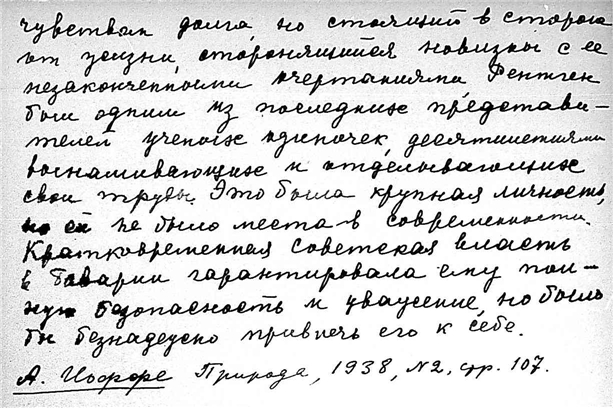 чувствам долга, но стоящий в стороне
от жизни, сторонящийся новизны с ее
незаконченными очертаниями Рентген
был одним из последних представи-
телей ученых одиночек, десятилетиями
вынашивающих и отделывающих
свои труды. Это была крупная личность,
но ей не было места в современности.
Кратковременная советская власть
в Баварии гарантировала ему пол-
ную безопасность и уважение, но было
бы безнадежно привлечь его к себе.
А. Иоффе Природа, 1938, №2, стр. 107.